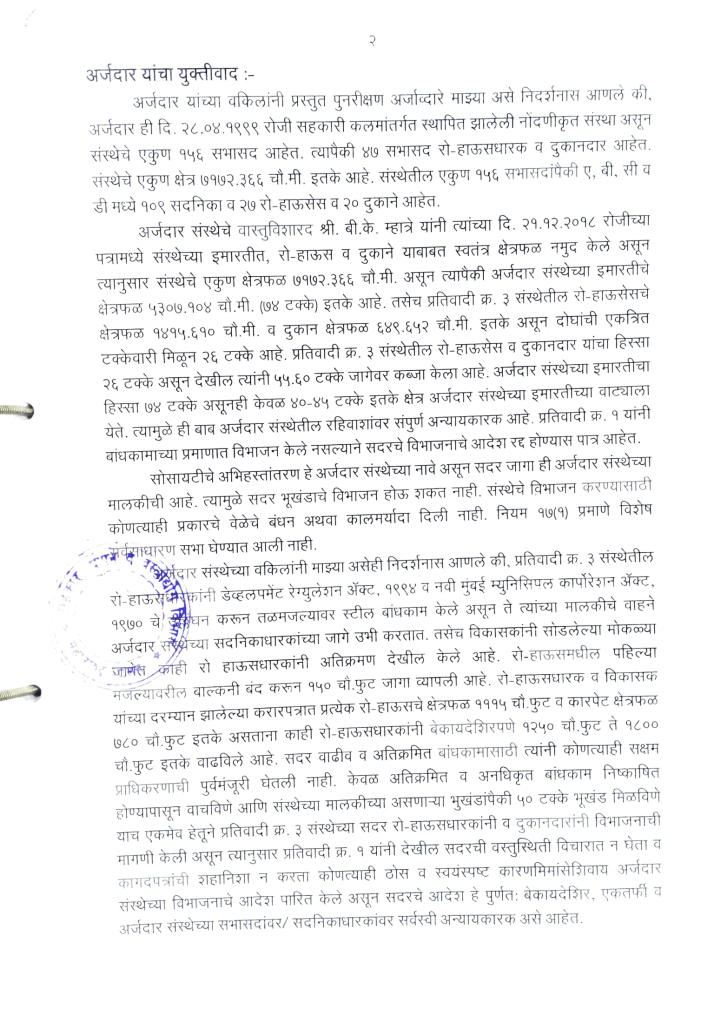 २
अर्जदार यांचा युक्तीवाद :-
अर्जदार यांच्या वकिलांनी प्रस्तुत पुनरीक्षण अर्जाव्दारे माझ्या असे निदर्शनास आणले की,
अर्जदार ही दि. २८.०४.१९९९ रोजी सहकारी कलमांतर्गत स्थापित झालेली नोंदणीकृत संस्था असून
संस्थेचे एकुण १५६ सभासद आहेत. त्यापैकी ४७ सभासद रो-हाऊसधारक व दुकानदार आहेत.
संस्थेचे एकुण क्षेत्र ७१७२.३६६ चौ.मी. इतके आहे. संस्थेतील एकुण १५६ सभासदांपैकी ए, बी, सी व
डी मध्ये १०९ सदनिका व २७ रो-हाऊसेस व २० दुकाने आहेत.
अर्जदार संस्थेचे वास्तुविशारद श्री. बी.के. म्हात्रे यांनी त्यांच्या दि. २१.१२.२०१८ रोजीच्या
पत्रामध्ये संस्थेच्या इमारतीत, रो-हाऊस व दुकाने याबाबत स्वतंत्र क्षेत्रफळ नमुद केले असून
त्यानुसार संस्थेचे एकुण क्षेत्रफळ ७१७२.३६६ चौ.मी. असून त्यापैकी अर्जदार संस्थेच्या इमारतीचे
क्षेत्रफळ ५३०७.१०४ चौ.मी. (७४ टक्के) इतके आहे. तसेच प्रतिवादी क्र. ३ संस्थेतील रो-हाऊसेसचे
क्षेत्रफळ १४१५.६१० चौ.मी. व दुकान क्षेत्रफळ ६४९.६५२ चौ.मी. इतके असून दोघांची एकत्रित
टक्केवारी मिळून २६ टक्के आहे. प्रतिवादी क्र. ३ संस्थेतील रो-हाऊसेस व दुकानदार यांचा हिस्सा
२६ टक्के असून देखील त्यांनी ५५.६० टक्के जागेवर कब्जा केला आहे. अर्जदार संस्थेच्या इमारतीचा
हिस्सा ७४ टक्के असूनही केवळ ४०-४५ टक्के इतके क्षेत्र अर्जदार संस्थेच्या इमारतीच्या वाट्याला
येते. त्यामुळे ही बाब अर्जदार संस्थेतील रहिवाशांवर संपुर्ण अन्यायकारक आहे. प्रतिवादी क्र. १ यांनी
बांधकामाच्या प्रमाणात विभाजन केले नसल्याने सदरचे विभाजनाचे आदेश रद्द होण्यास पात्र आहेत.
सोसायटीचे अभिहस्तांतरण हे अर्जदार संस्थेच्या नावे असून सदर जागा ही अर्जदार संस्थेच्या
मालकीची आहे. त्यामुळे सदर भूखंडाचे विभाजन होऊ शकत नाही. संस्थेचे विभाजन करण्यासाठी
कोणत्याही प्रकारचे वेळेचे बंधन अथवा कालमर्यादा दिली नाही. नियम १७(१) प्रमाणे विशेष
सर्वसाधारण सभा घेण्यात आली नाही.
अर्जदार संस्थेच्या वकिलांनी माझ्या असेही निदर्शनास आणले की, प्रतिवादी क्र. ३ संस्थेतील
रो-हाऊसधारकांनी डेव्हलपमेंट रेग्युलेशन ॲक्ट, १९९४ व नवी मुंबई म्युनिसिपल कार्पोरेशन ॲक्ट,
१९७० चे उल्लंघन करून तळमजल्यावर स्टील बांधकाम केले असून ते त्यांच्या मालकीचे वाहने
अर्जदार संस्थेच्या सदनिकाधारकांच्या जागे उभी करतात. तसेच विकासकांनी सोडलेल्या मोकळ्या
जागेत काही रो हाऊसधारकांनी अतिक्रमण देखील केले आहे. रो-हाऊसमधील पहिल्या
मजल्यावरील बाल्कनी बंद करून १५० चौ.फुट जागा व्यापली आहे. रो-हाऊसधारक व विकासक
यांच्या दरम्यान झालेल्या करारपत्रात प्रत्येक रो-हाऊसचे क्षेत्रफळ १११५ चौ.फुट व कारपेट क्षेत्रफळ
७८० चौ.फुट इतके असताना काही रो-हाऊसधारकांनी बेकायदेशिरपणे १२५० चौ.फुट ते १८००
चौ.फुट इतके वाढविले आहे. सदर वाढीव व अतिक्रमित बांधकामासाठी त्यांनी कोणत्याही सक्षम
प्राधिकरणाची पुर्वमंजूरी घेतली नाही. केवळ अतिक्रमित व अनधिकृत बांधकाम निष्काषित
होण्यापासून वाचविणे आणि संस्थेच्या मालकीच्या असणाऱ्या भुखंडांपैकी ५० टक्के भूखंड मिळविणे
याच एकमेव हेतूने प्रतिवादी क्र. ३ संस्थेच्या सदर रो-हाऊसधारकांनी व दुकानदारांनी विभाजनाची
मागणी केली असून त्यानुसार प्रतिवादी क्र. १ यांनी देखील सदरची वस्तुस्थिती विचारात न घेता व
कागदपत्रांची शहानिशा न करता कोणत्याही ठोस व स्वयंस्पष्ट कारणमिमांसेशिवाय अर्जदार
संस्थेच्या विभाजनाचे आदेश पारित केले असून सदरचे आदेश हे पुर्णत: बेकायदेशिर, एकतर्फी व
अर्जदार संस्थेच्या सभासदांवर/ सदनिकाधारकांवर सर्वस्वी अन्यायकारक असे आहेत.